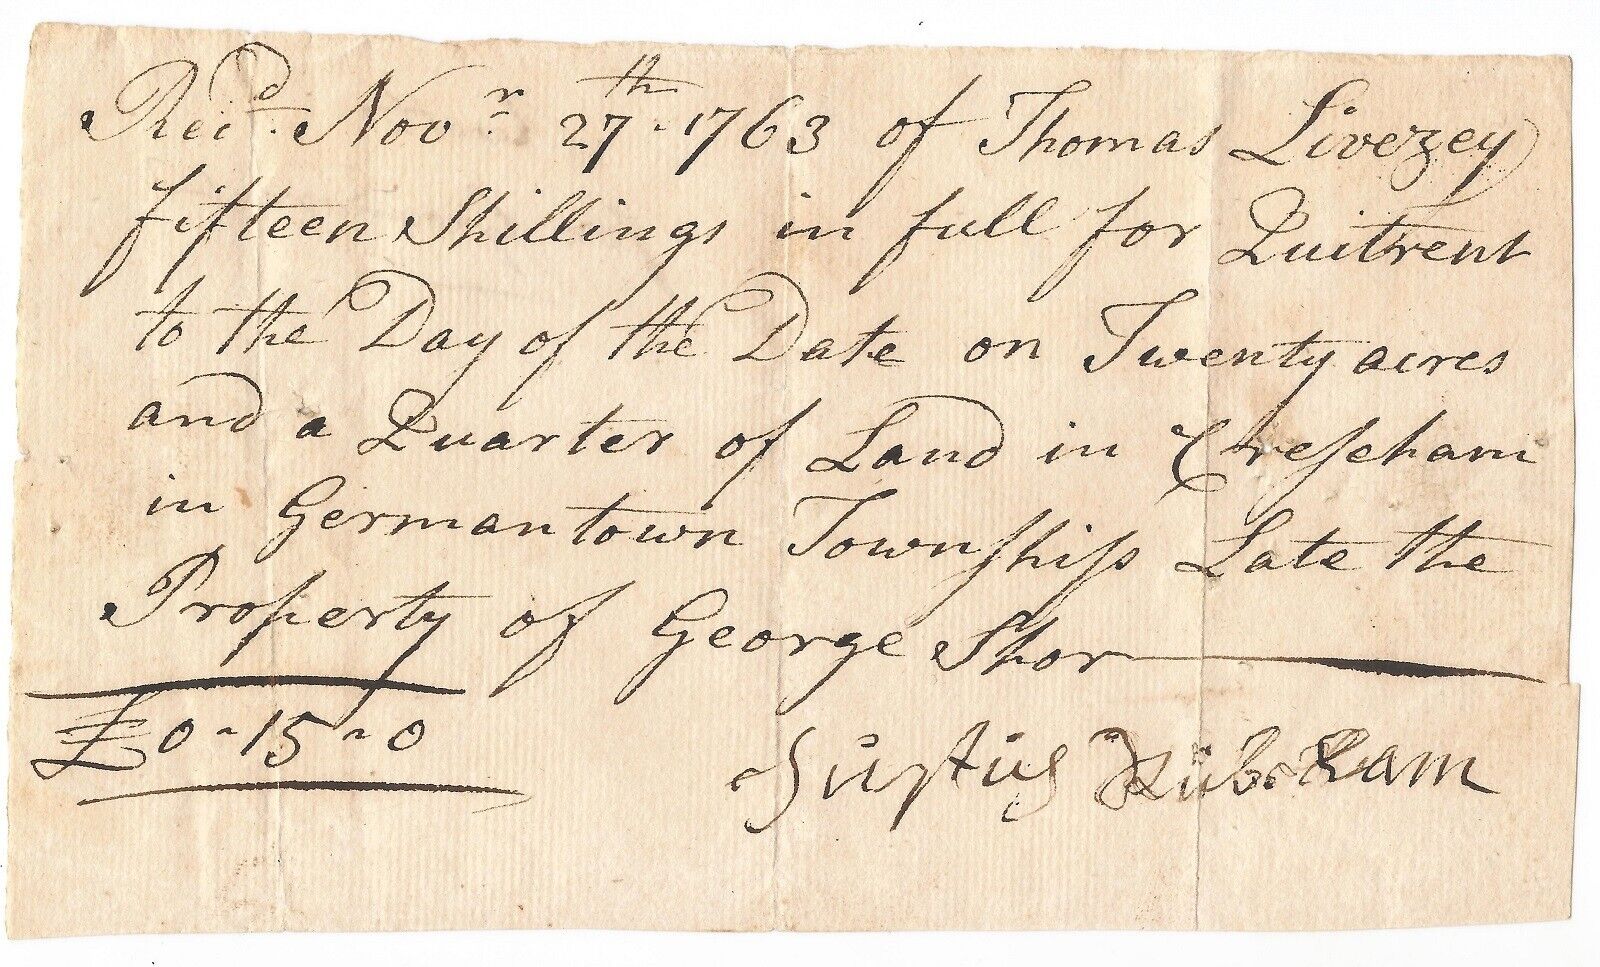 Rec'd. Novr. 27th. 1763 of Thomas Livezey
fifteen Shillings in full for Quitrent
to the Day of the Date on Twenty acres
and a Quarter of Land in Creſeham
in Germantown Townſhip Late the
Property of George Shor
£0-15-0
Justus